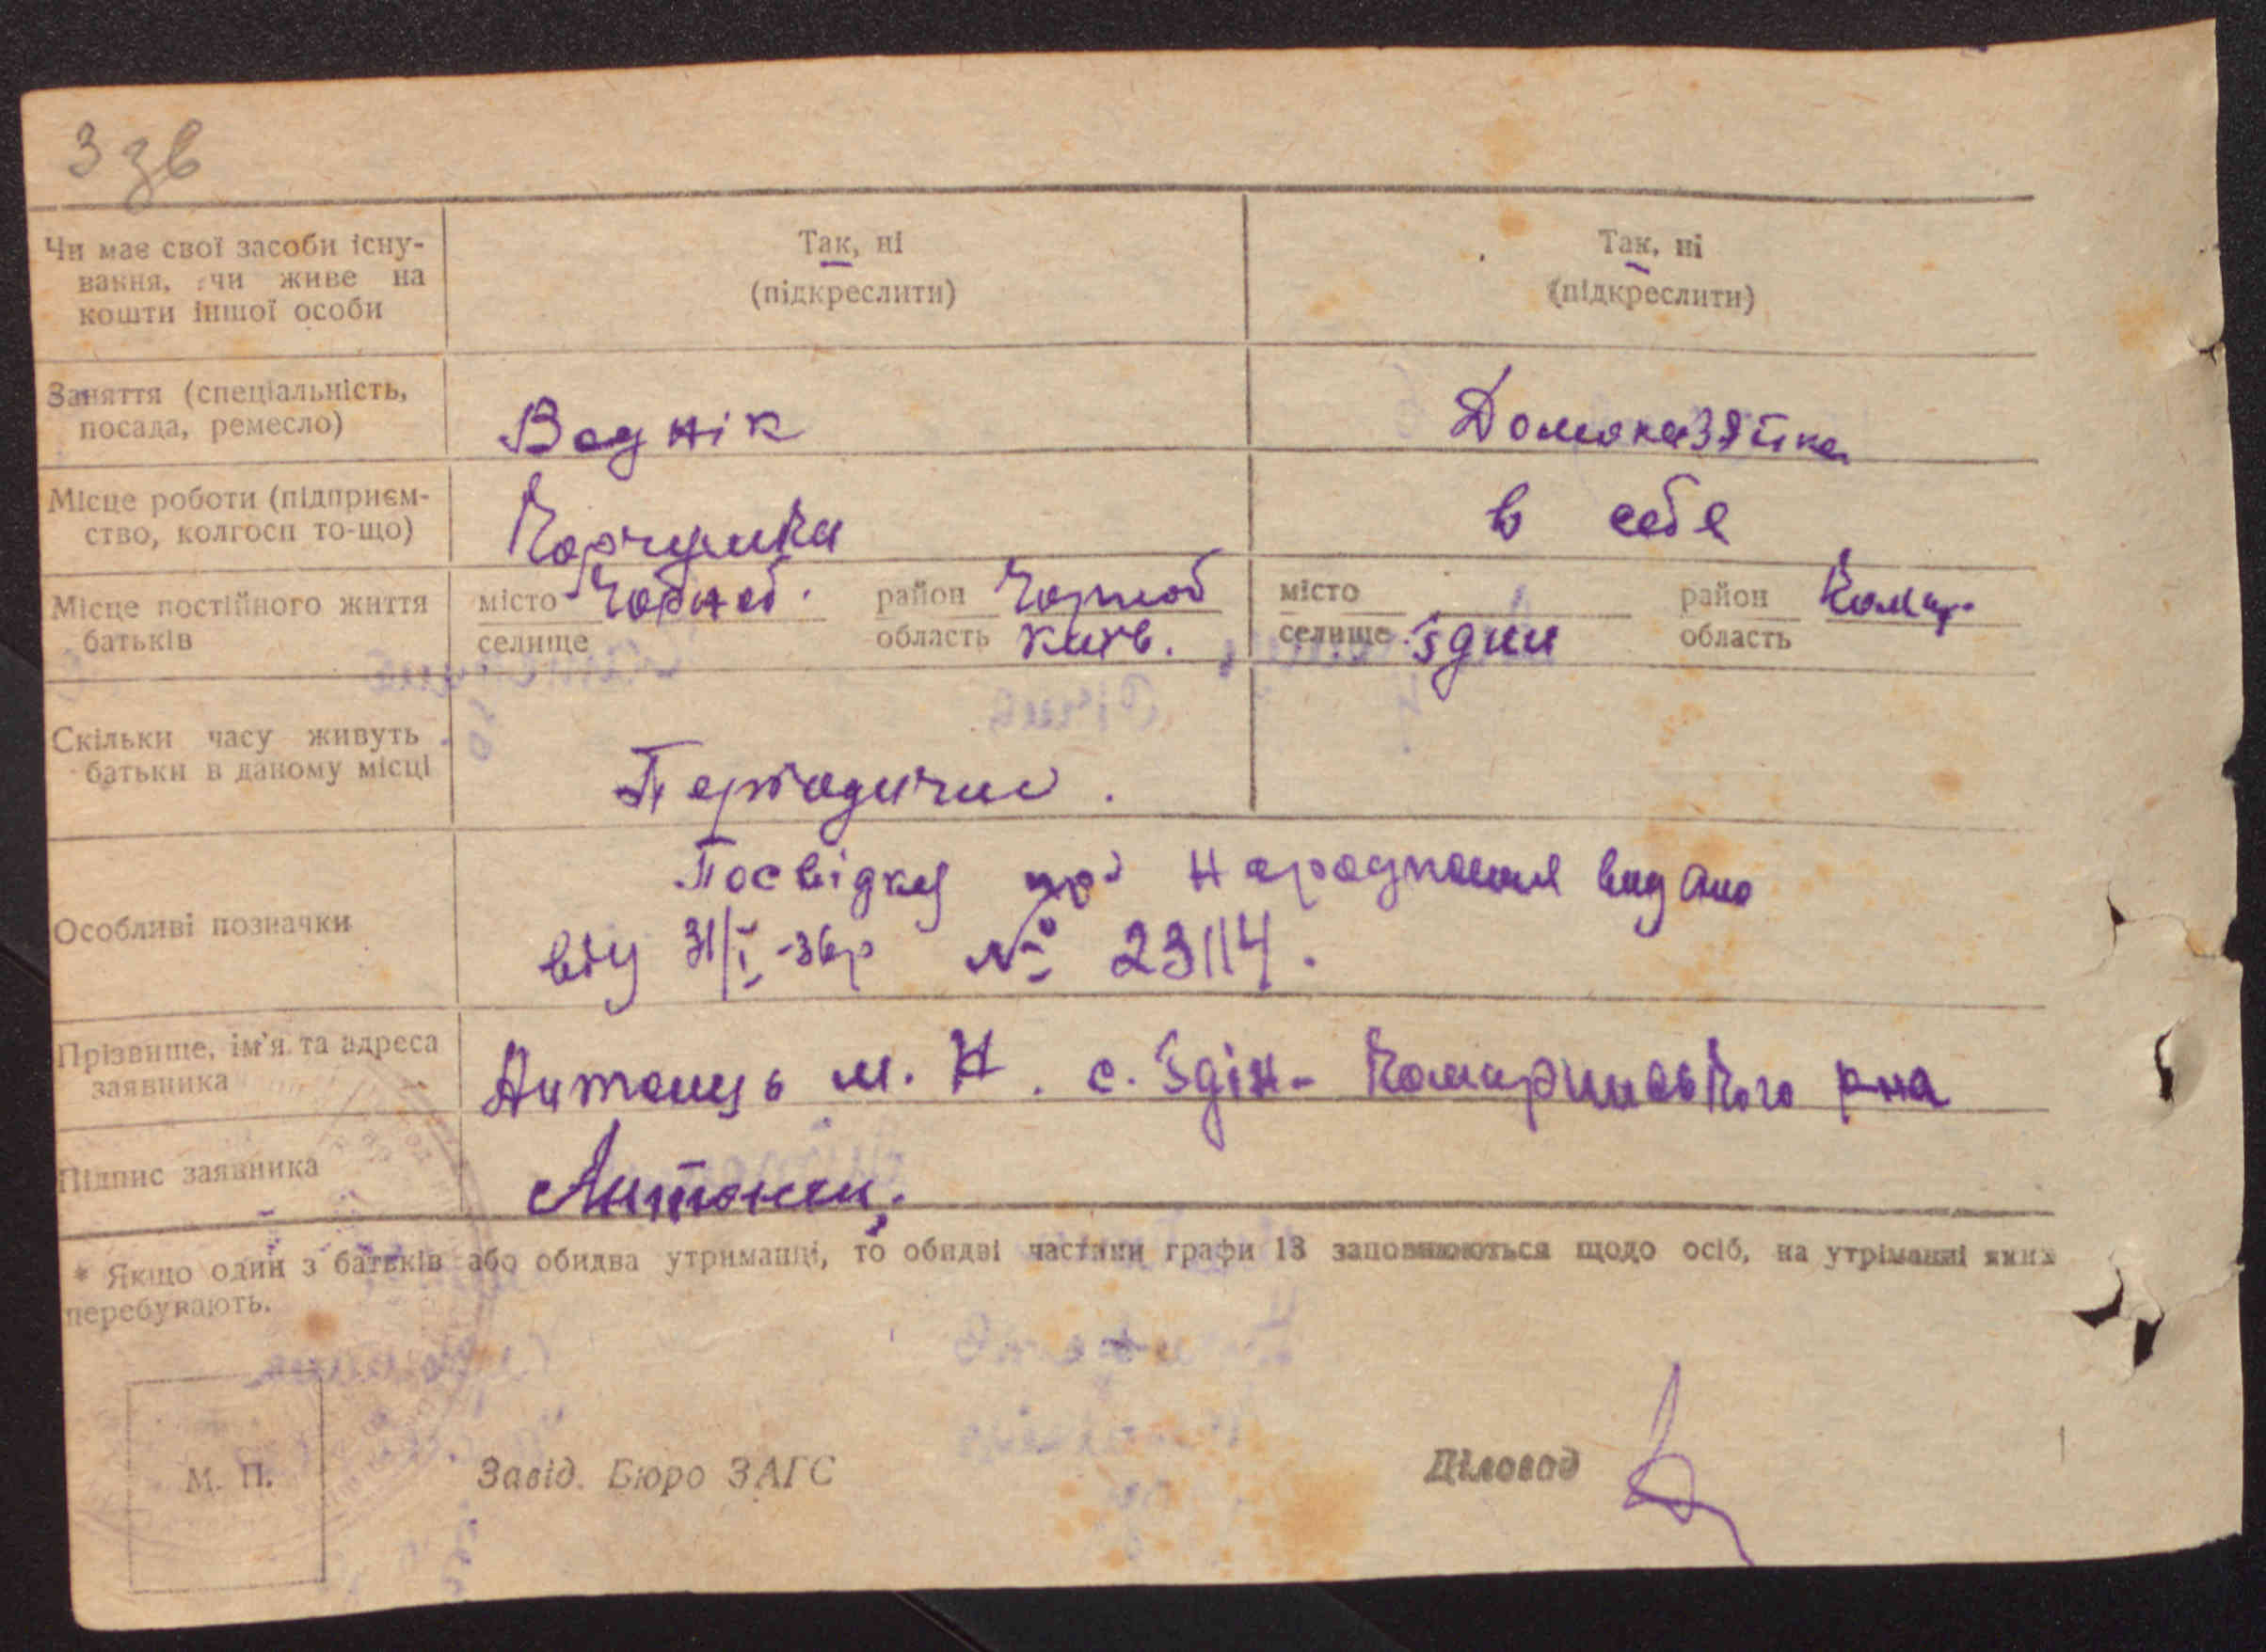 3 зв
Чи має свої засоби існу-
вання, чи живе на
кошти іншої особи
Так, ні
(підкреслити)
Так, ні
(підкреслити)
Заняття (спеціальність,
посада, ремесло)
Воднік
Домохазяйка
Місце роботи (підприєм-
ство, колгосп то-що)
в себе
Місце постійного життя
батьків
місто Чорноб.
селище
район Чорноб
область Київ.
місто
селище Іздин
район Комар.
область
Скільки часу живуть
батьки в даному місці
Періодично.
Особливі позначки
Посвідку про народження видано
від 31/I-36р № 23114.
Прізвище, ім'я та адреса
заявника
Антонець М. Н. с. Іздін- Комаринського р-на
Підпис заявника
Антонец.
* Якщо один з батьків або обидва утриманці, то обидві частини графи 13 заповнюються щодо осіб, на утріманні яких
перебувають.
М. П.
Завід. Бюро ЗАГС
Діловод